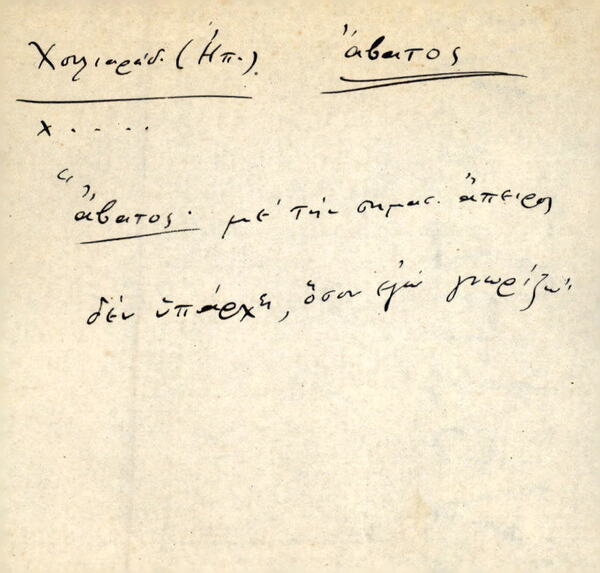 Χουλιαράδ. (Ἠπ.) ἄβατος
χ. . . . .
"ἄβατος· μὲ τὴν σημασ. ἄπειρος
δὲν ὑπάρχει, ὅσον ἐγὼ γνωρίζω"